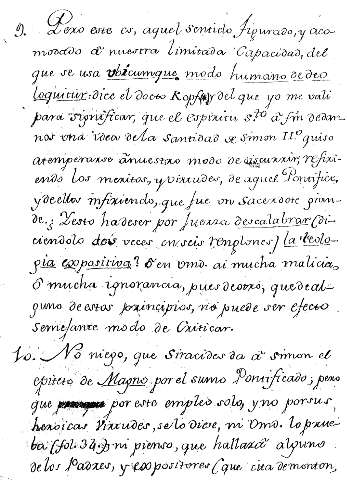 9. Pero este es, aquel sentido figurado, y aco
modado â nuestra limitada Capacidad, del
que se usa ubicumque modo humano de deo
loquitur: dice el docto Kopf y del que yo me vali
para significar, que el espiritu sto â fin de dar
nos una idea de la Santidad de Simon IIo. quiso
atemperarse ânuestro modo de discurrir, refiri
endo los meritos, y virtudes, de aquel Pontifice,
y de ellos infiriendo, que fue un Sacerdote gran
de. ¿Y esto ha deser por fuerza descalabrar (di
ciendolo dos veces en seis renglones) la teolo
gia expositiva? ô en vmd. ai mucha malicia,
ô mucha ignorancia, pues de otro, que de al
guno de estos principios, no puede ser efecto
semejante modo de Criticar.
10. No niego, que Siracides da â Simon el
epiteto de Magno por el sumo Pontificado; pero
que por este empleo solo, y no por sus
heroicas Virtudes, se lo diese, ni Vmd. lo prue
ba (fol. 34.) ni pienso, que hallarâ alguno
de los Padres, y expositores (que cita demonton,